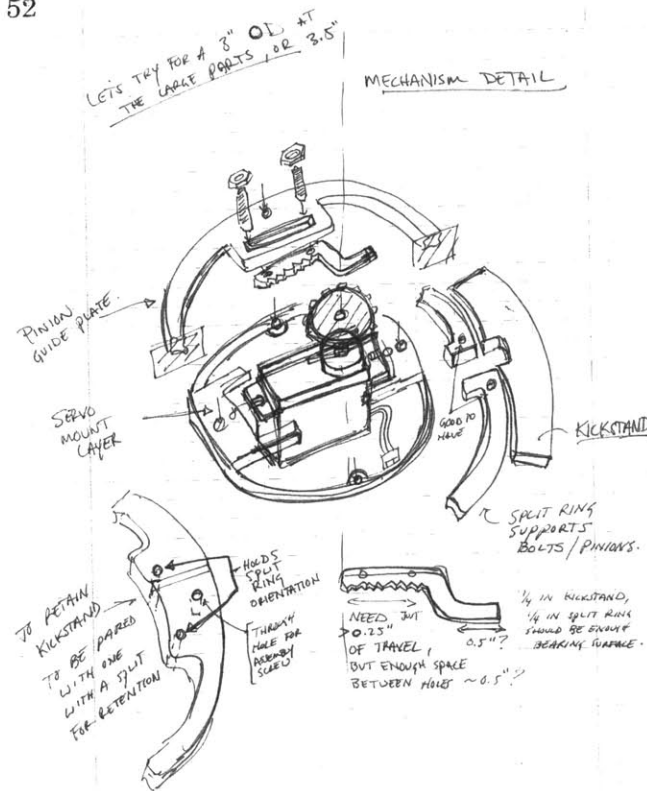 52
LET'S TRY FOR A 3" OD AT
THE LARGE PARTS, OR 3.5"
MECHANISM DETAIL
PINION
GUIDE PLATE.
SERVO
MOUNT
LAYER
GOOD TO
HAVE
KICKSTAND
SPLIT RING
SUPPORTS
BOLTS/PINIONS.
TO RETAIN
KICKSTAND
TO BE PARED
WITH ONE
WITH A SPLIT
FOR RETENTION
HOLDS
SPLIT
RING
ORIENTATION
THROUGH
HOLE FOR
ASSEMBLY
SCREW
NEED JUT
> 0.25"
OF TRAVEL,
BUT ENOUGH SPACE
BETWEEN HOLES ~0.5"?
0.5"?
1/4 IN KICKSTAND,
1/4 IN SPLIT RING
SHOULD BE ENOUGH
BEARING SURFACE.